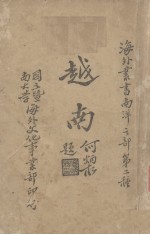 海外叢書南洋之部第二種
越南
何炳松題
國立暨南大學海外文化事業部印行